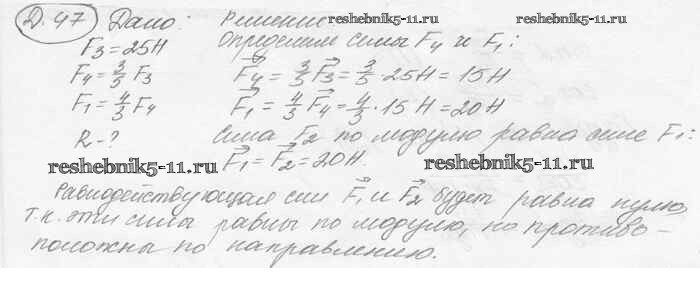 Д.47 Дано: Решение
reshebnik5-11.ru reshebnik5-11.ru
F₃ = 25Н Определим силы F₄ и F₁:
F₄ = 3/5 F₃ F⃗₄ = 3/5 F⃗₃ = 3/5 · 25Н = 15Н
F₁ = 4/3 F₄ F⃗₁ = 4/3 F⃗₄ = 4/3 · 15Н = 20Н
R - ? Сила F₂ по модулю равна силе F₁:
reshebnik5-11.ru F⃗₁ = F⃗₂ = 20Н. reshebnik5-11.ru
Равнодействующая сил F⃗₁ и F⃗₂ будет равна нулю,
т.к. эти силы равны по модулю, но противо-
положны по направлению.
reshebnik5-11.ru